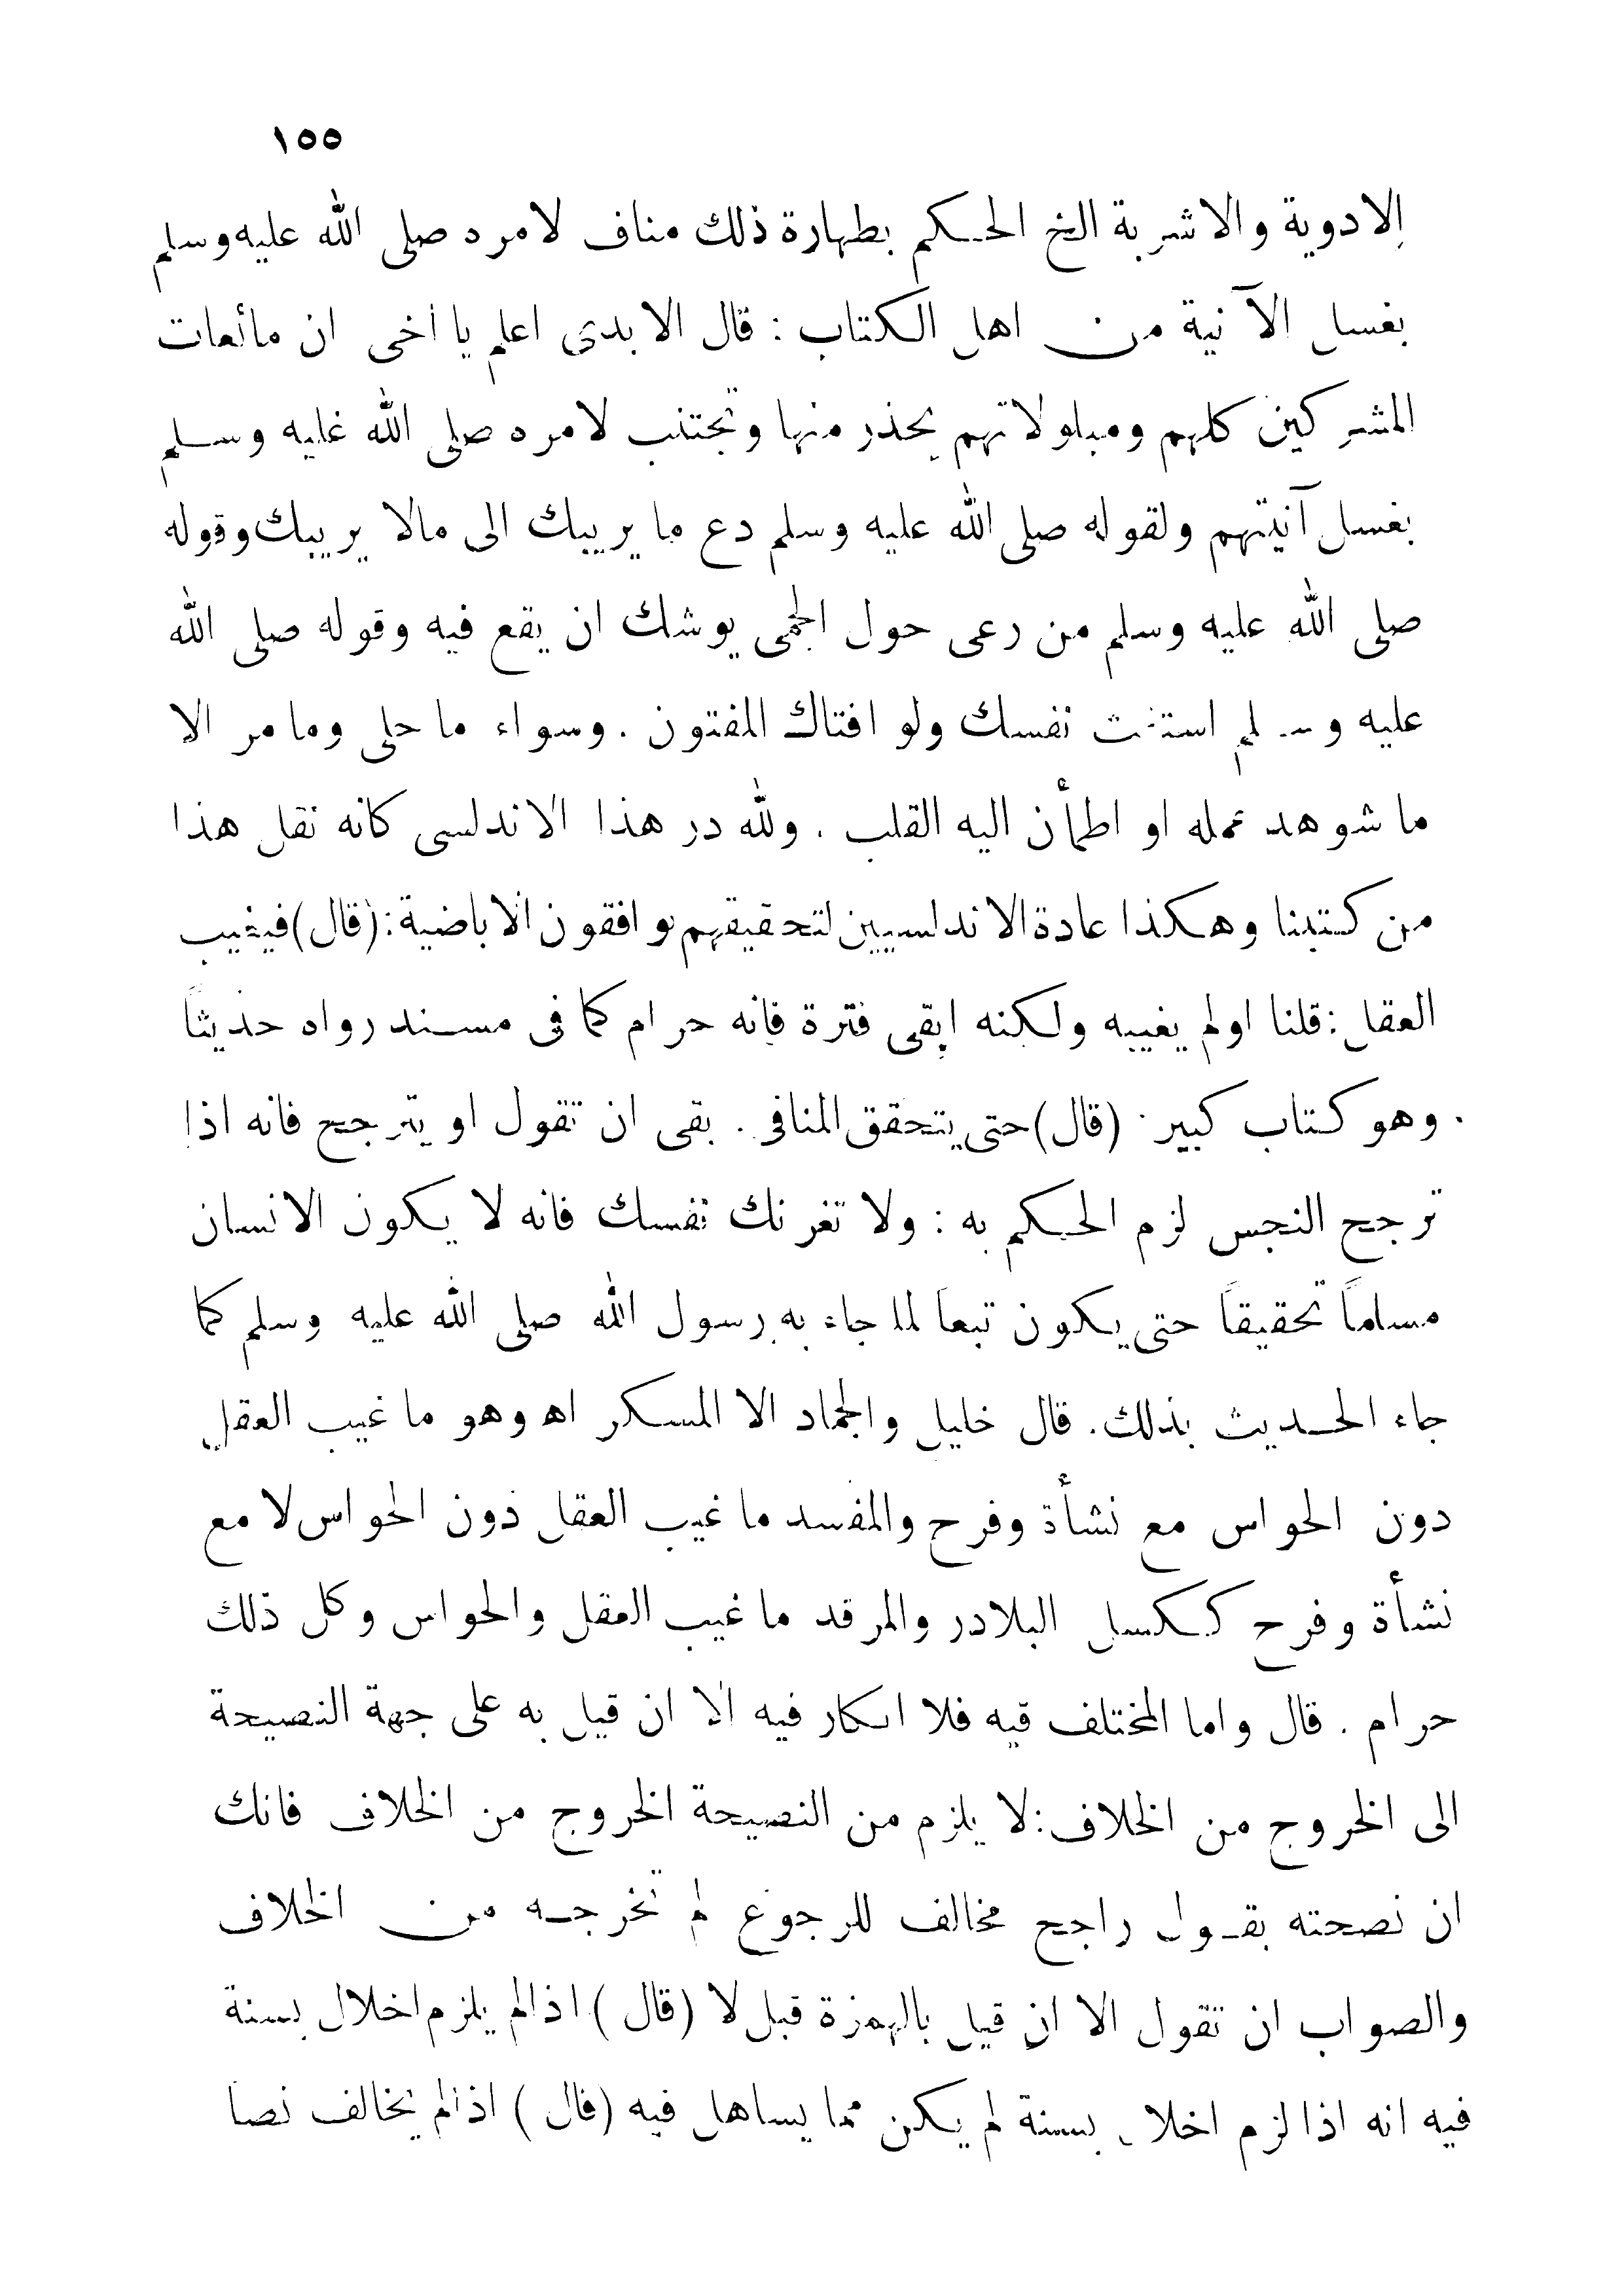 ١٥٥
الادوية والاشربة الخ الحكم بطهارة ذلك مناف لامره صلى الله عليه وسلم
بغسل الآنية من اهل الكتاب : قال الابدى اعلم يا أخى ان مائعات
المشركين كلهم ومبلولاتهم يحذر منها وتجتنب لامره صلى الله عليه وسلم
بغسل آنيتهم ولقوله صلى الله عليه وسلم دع ما يريبك الى مالا يريبك وقوله
صلى الله عليه وسلم من رعى حول الحمى يوشك ان يقع فيه وقوله صلى الله
عليه وسلم استفت نفسك ولو افتاك المفتون . وسواء ما حلى وما مر الا
ما شوهد عمله او اطمأن اليه القلب . ولله در هذا الاندلسى كانه نقل هذا
من كتبنا وهكذا عادة الاندلسيين لتحقيقهم يوافقون الاباضية : (قال) فيغيب
العقل : قلنا اولم يغيبه ولكنه ابقى فترة فانه حرام كما فى مسند رواه حديثاً
وهو كتاب كبير (قال) حتى يتحقق المنافى . بقى ان تقول او يترجح فانه اذا
ترجح النجس لزم الحكم به : ولا تغرنك نفسك فانه لا يكون الانسان
مسلماً تحقيقاً حتى يكون تبعاً لما جاء به رسول الله صلى الله عليه وسلم كما
جاء الحديث بذلك . قال خليل والجماد الا المسكر اه وهو ما غيب العقل
دون الحواس مع نشأة وفرح والمفسد ما غيب العقل دون الحواس لا مع
نشأة وفرح ككسل البلادر والمرقد ما غيب العقل والحواس وكل ذلك
حرام . قال واما المختلف فيه فلا انكار فيه الا ان قيل به على جهة النصيحة
الى الخروج من الخلاف : لا يلزم من النصيحة الخروج من الخلاف فانك
ان نصحته بقول راجح مخالف للرجوع لم تخرجه من الخلاف
والصواب ان تقول الا ان قيل بالهمزة قبل لا (قال) اذا لم يلزم اخلال بسنة
فيه انه اذا لزم اخلال بسنة لم يكن مما يساهل فيه (قال) اذا لم يخالف نصا